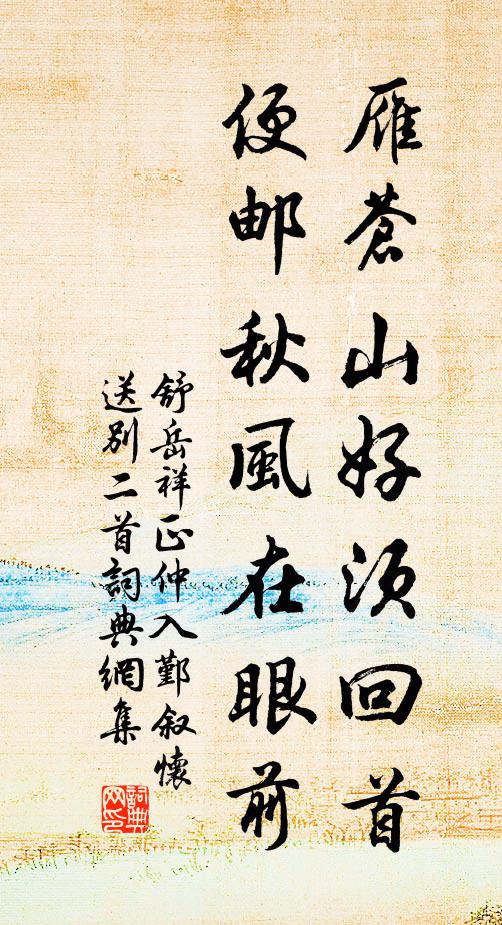 雁蒼山好須回首
便邮秋風在眼前
舒岳祥正仲入鄞叙懷
送別二首詞典網集
詞典
网印